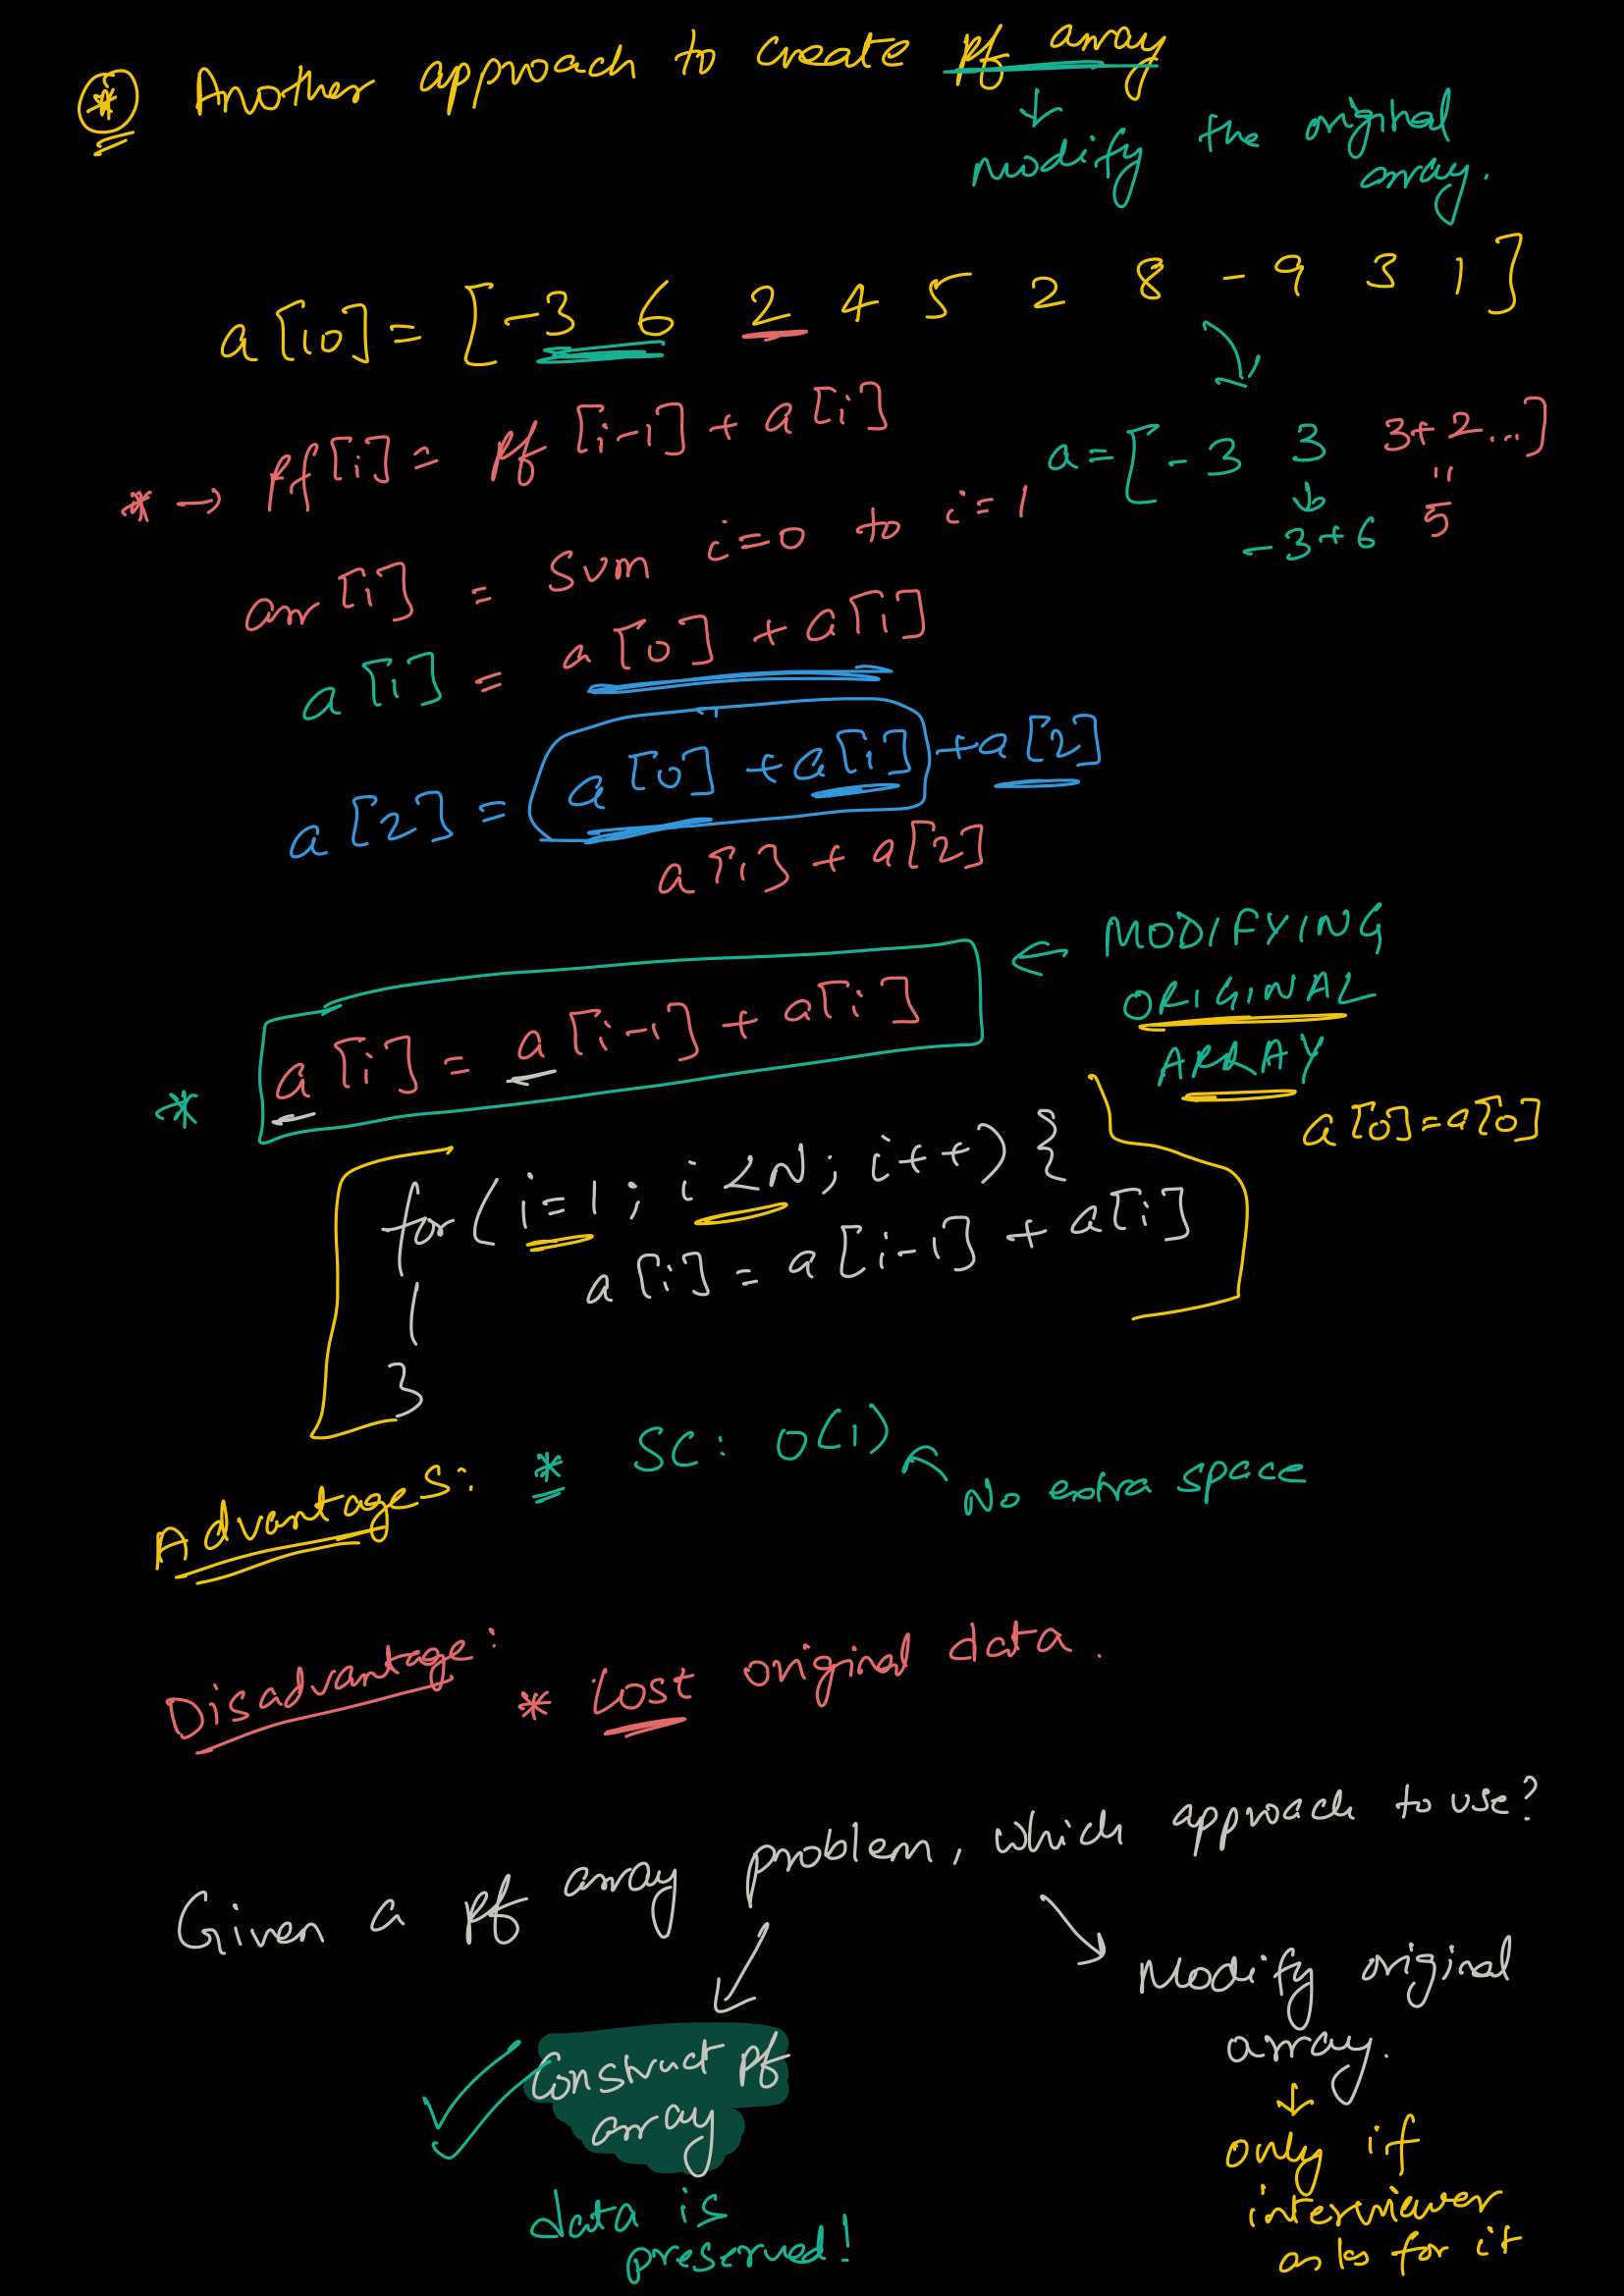 * Another approach to create pf array
↓
modify the original
array.
a[10] = [-3 6 2 4 5 2 8 -9 3 1]
* → pf[i] = pf[i-1] + a[i]
a = [-3 3 3+2...]
↓ "
-3+6 5
arr[i] = sum i=0 to i=1
a[i] = a[0] + a[i]
"
a[2] = a[0] + a[i] + a[2]
a[1] + a[2]
* a[i] = a[i-1] + a[i] ← MODIFYING
ORIGINAL
ARRAY
a[0]=a[0]
for(i=1; i<N; i++){
a[i] = a[i-1] + a[i]
}
Advantages: * SC: O(1)
No extra space
Disadvantage: * Lost original data.
Given a pf array problem, which approach to use?
Construct pf
array
data is
preserved!
Modify original
array.
↓
only if
interviewer
asks for it